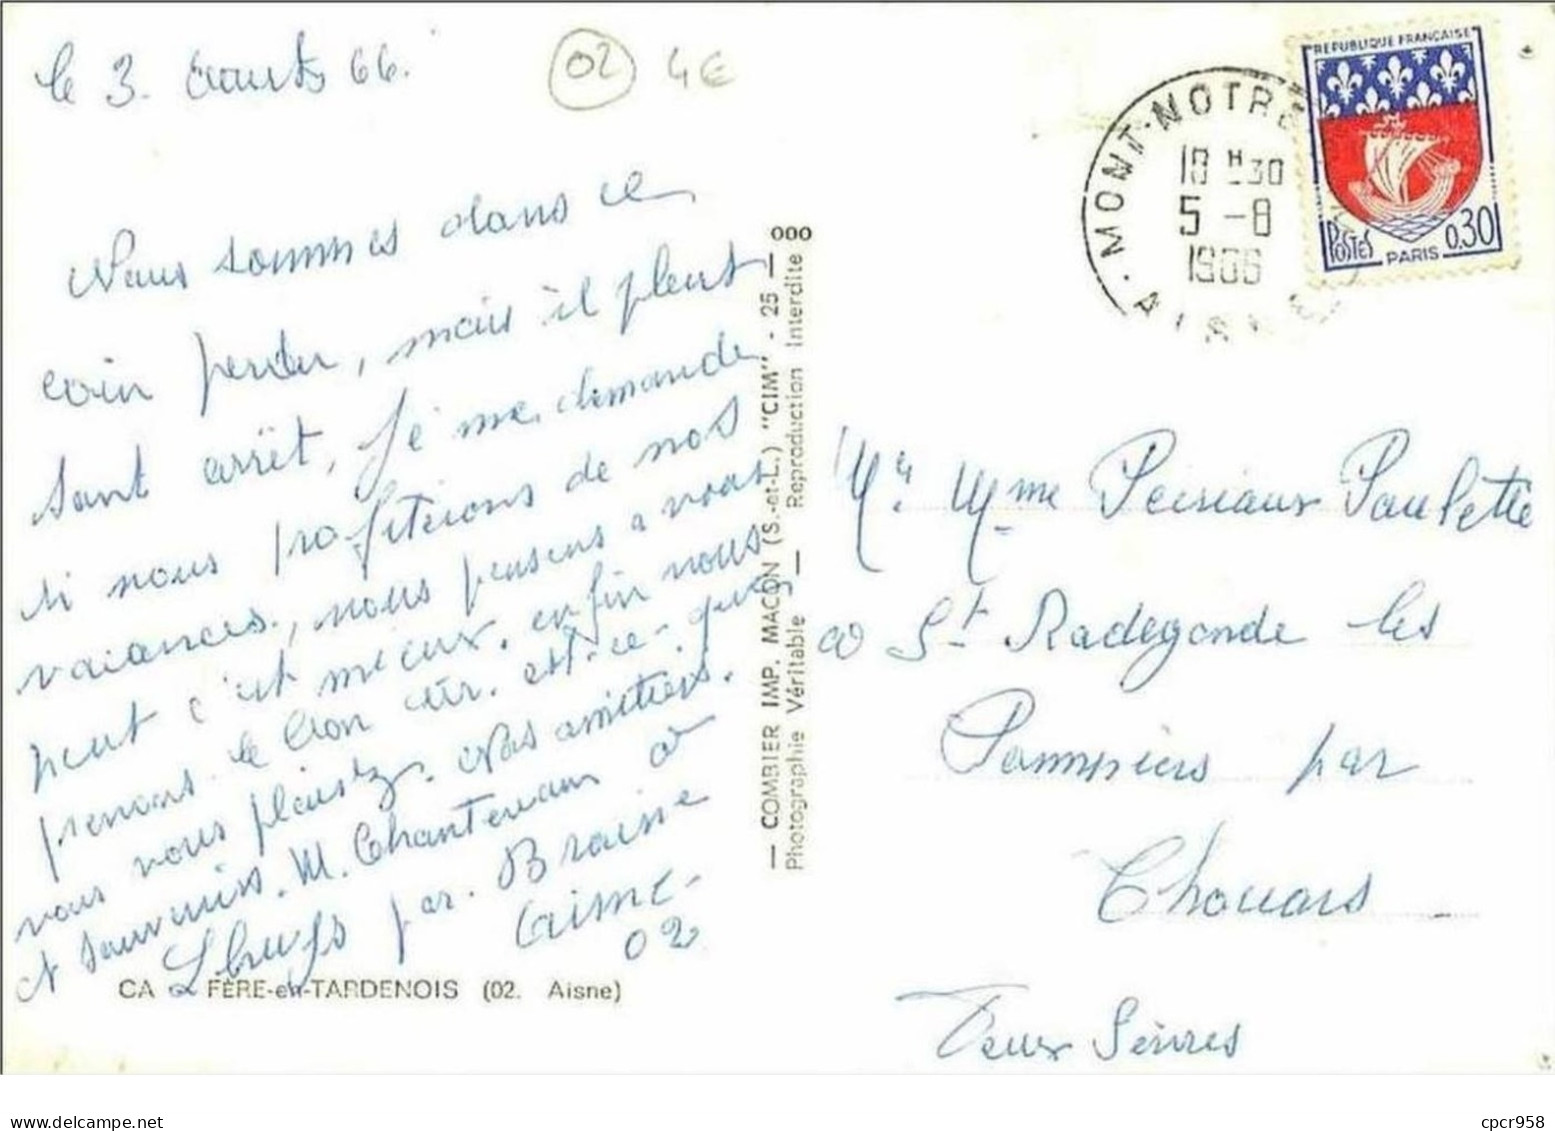 le 3. Aout 66.
02 4€
Nous sommes dans ce
coin perdu, mais il pleut
sant arrët, Je me demande
si nous profiterons de nos
vacances, nous pensons a vous
peut c'est mieux. enfin nous
prenons le bon air. est-ce-que
vous vous plaisez. Nos amitiers
et Souvenirs. M. Chantereau a
Lhuys par. Braine
Aisne-
02
CA FÈRE-en-TARDENOIS (02. Aisne)
— COMBIER IMP. MACON (S.-et-L.) "CIM" - 25 — 000
Photographie Véritable — Reproduction Interdite
RÉPUBLIQUE FRANÇAISE
POSTES 0,30
PARIS
MONT-NOTRE
18 H30
5 -8
1966
AISNE
Mr Mme Paulette
a St Radegonde les
Pommiers par
Thouars
Deux Sèvres
cpcr958